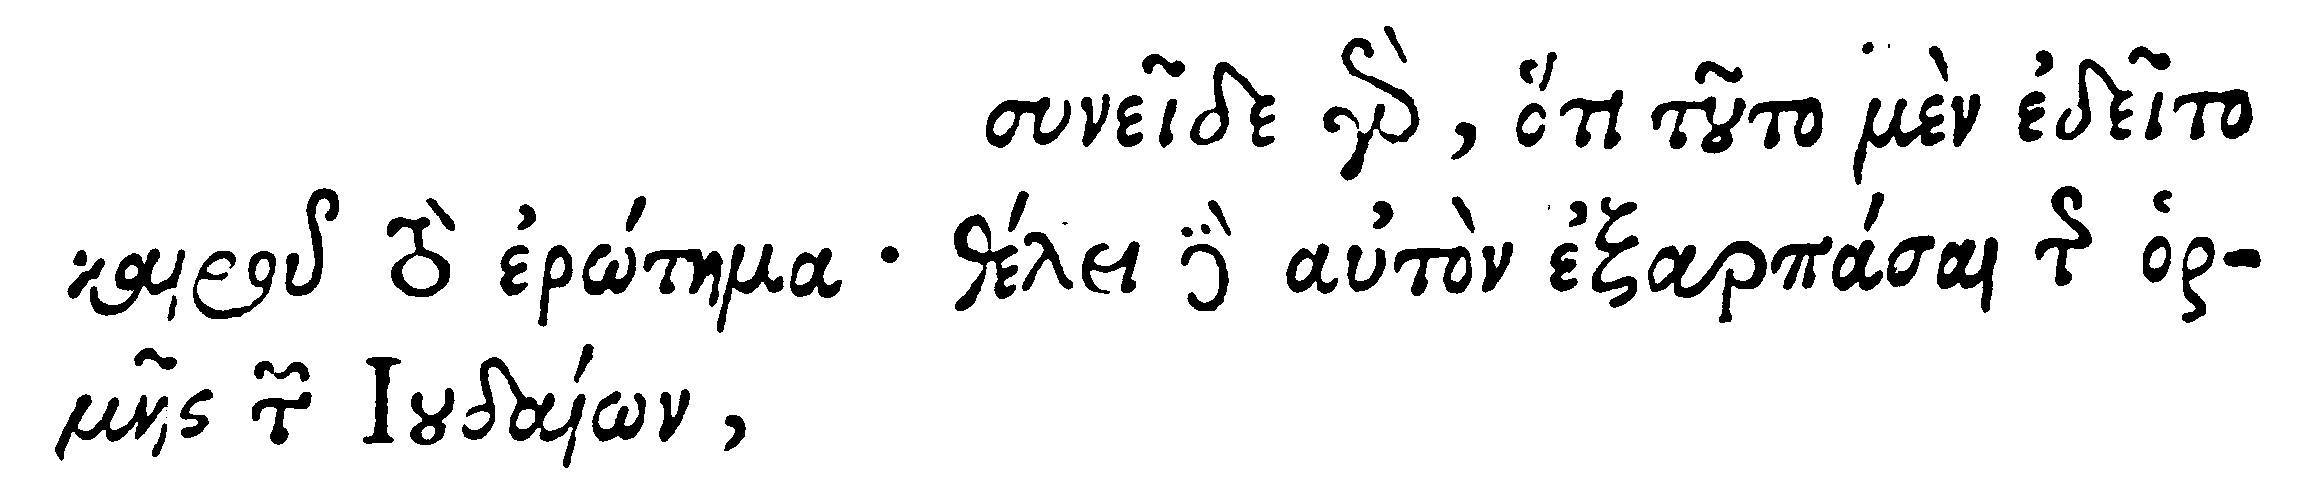 συνεῖδε γὰρ, ὅτι τοῦτο μὲν ἐδεῖτο
καιροῦ τὸ ἐρώτημα · θέλει δὲ αὐτὸν ἐξαρπάσαι τῆς ὁρ-
μῆς τῶν Ιουδαίων,